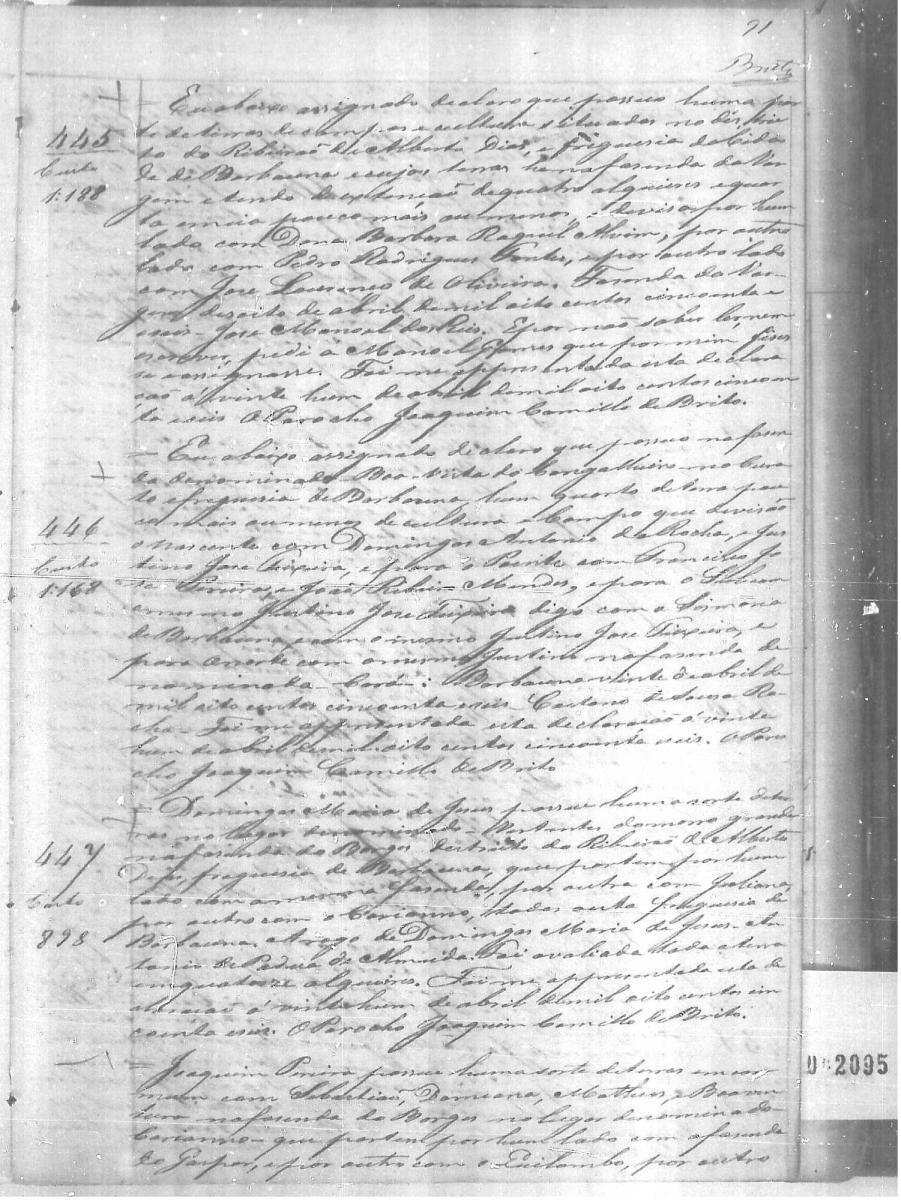 91
Brito
— Eu abaixo assignado declaro que possuo huma par
te de terras de campos e cultura situadas no distric
445
to do Ribeirão de Alberto Dias, e freguesia da Cida
de de Barbacena e cujas terras he na fasenda da Var
Custo
gem e tendo de extenção de quatro alquieres e quar
1:188
ta e meia pouco mais ou menos, e devisa por hum
lado com Dona Barbara Raquel Alvim, por outro
lado com Pedro Rodrigues Fontes, e por outro lado
com Jose Lourenco de Oliveira. Fasenda da Var
gem desoito de abril de mil oito centos cincoenta e
seis — Jose Manoel dos Reis. E por não saber ler nem
escrever, pedi á Manoel Gomes que por mim fises
se e assignasse. Foi me appresentada esta declara
ção á vinte hum de abril de mil oito centos cincoen
ta e seis O Parocho Joaquim Camillo de Brito.
— Eu abaixo assignado declaro que possuo na fasen
da denominada — Boa Vista do Cangalheiro — no Cura
to e freguesia de Barbacena hum quarto de terra pou
446
co mais ou menos de cultura e Campo que devisão
o nascente com Domingos Antonio da Rocha, e Jus
Custo
tino Jose Teixeira, e para o Poente com Francisco Jo
1:168
se Pereira, e João Ribeiro Mendes, e para o Sul com
o mesmo Justino Jose Teixeira digo com a Sismaria
de Barbacena e com o mesmo Justino Jose Teixeira, e
para o norte com o mesmo Justino na fasenda de
nominada — Cará —. Barbacena vinte de abril de
mil oito centos cincoenta e seis Caetano de Sousa Ro
cha — Foi me appresentada esta declaração á vinte
hum de abril de mil oito centos cincoenta e seis. O Paro
cho Joaquim Camillo de Brito
— Domingos Maria de Jesus possue huma sorte de ter
ras no lugar denominado — Vertentes do morro grande
447
na fasenda do Borges destricto do Ribeirão de Alberto
Dias, freguesia de Barbacena, que partem por hum
Custo
lado com a mesma fasenda, por outra com Juliana,
por outro com o Carianno, todas nesta freguesia de
898
Barbacena. A rogo de Domingos Maria de Jesus. An
tonio de Padua de Almeida. Foi avaliada toda a terra
em quatorze alquieres. Foi me appresentada esta de
claração á vinte hum de abril de mil oito centos cin
coenta e seis. O Parocho Joaquim Camillo de Brito.
— Joaquim Pereira possue huma sorte de terras em com
mum com Sebastião, Damiana, Matheus, e Boaven
tura na fasenda do Borges no lugar denominado
Carianno — que partem por hum lado com a fasenda
do Gaspar, e por outro com o Quilombo, por outro
2095